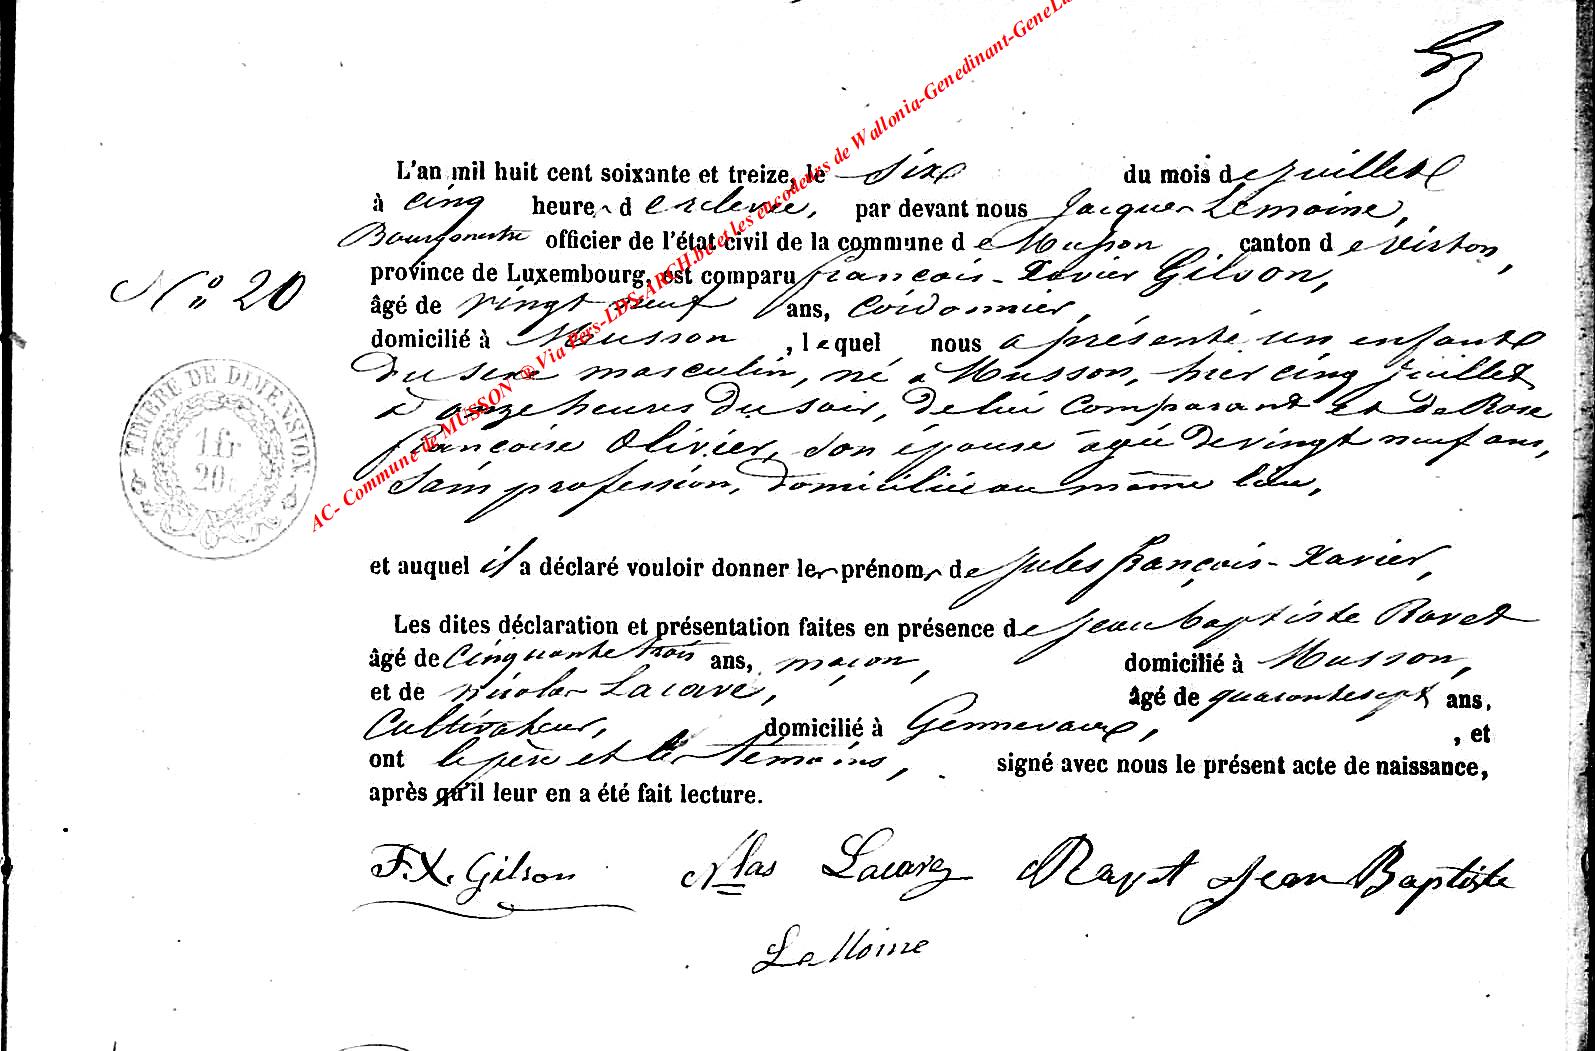 L'an mil huit cent soixante et treize, le six du mois de juillet
à cinq heures de relevée, par devant nous Jacques Lemoine,
Bourgmestre officier de l'état civil de la commune de Musson canton de Virton,
N° 20
province de Luxembourg, est comparu françois-Xavier Gilson,
âgé de vingt neuf ans, cordonnier,
domicilié à Musson, lequel nous a présenté un enfant
du sexe masculin, né à Musson, hier cinq juillet
à onze heures du soir, de lui comparant et de Rose
françoise Olivier, son épouse agée de vingt neuf ans,
sans profession, domiciliée au même lieu,
TIMBRE DE DIMENSION.
1 fr
20c
et auquel il a déclaré vouloir donner les prénoms de jules françois-Xavier,
Les dites déclaration et présentation faites en présence de jean baptiste
âgé de cinquante trois ans, maçon, domicilié à Musson,
et de nicolas Lacave, âgé de quarante sept ans,
Cultivateur, domicilié à Gennevaux, , et
ont le père et les témoins, signé avec nous le présent acte de naissance,
après qu'il leur en a été fait lecture.
F.X. Gilson Nlas Jean Baptiste
LeMoine
AC- Commune de MUSSON ® Via Pers-LDS-ARCH.be et les encodeurs de Wallonia-Genedinant-GeneLu